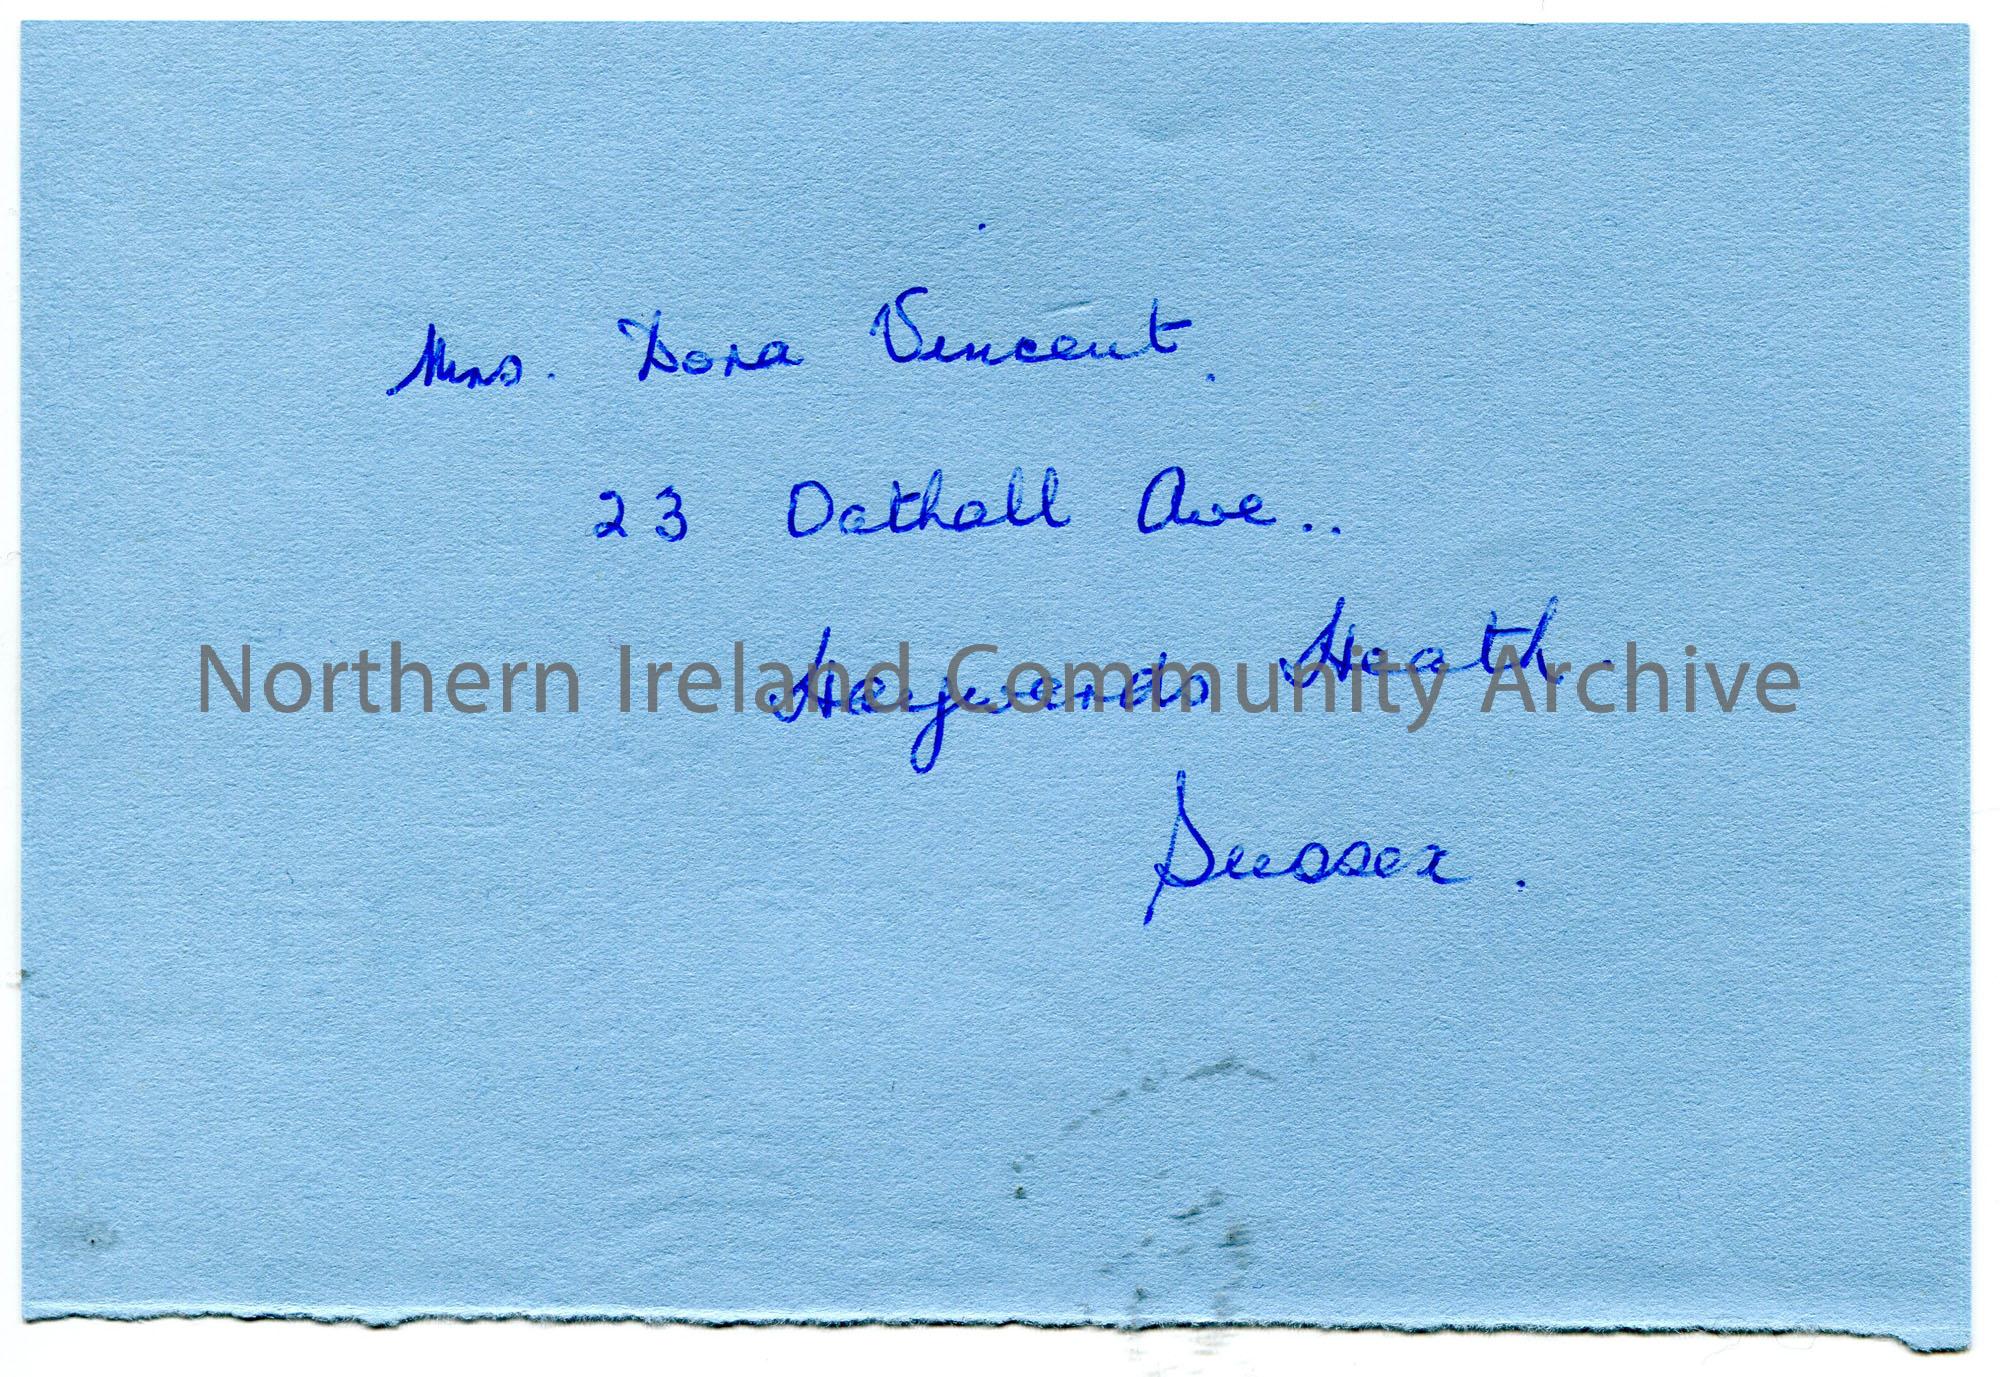 Mrs. Dora Vincent.
23 Oathall Ave..
Haywards Heath.
Northern Ireland Community Archive
Sussex.